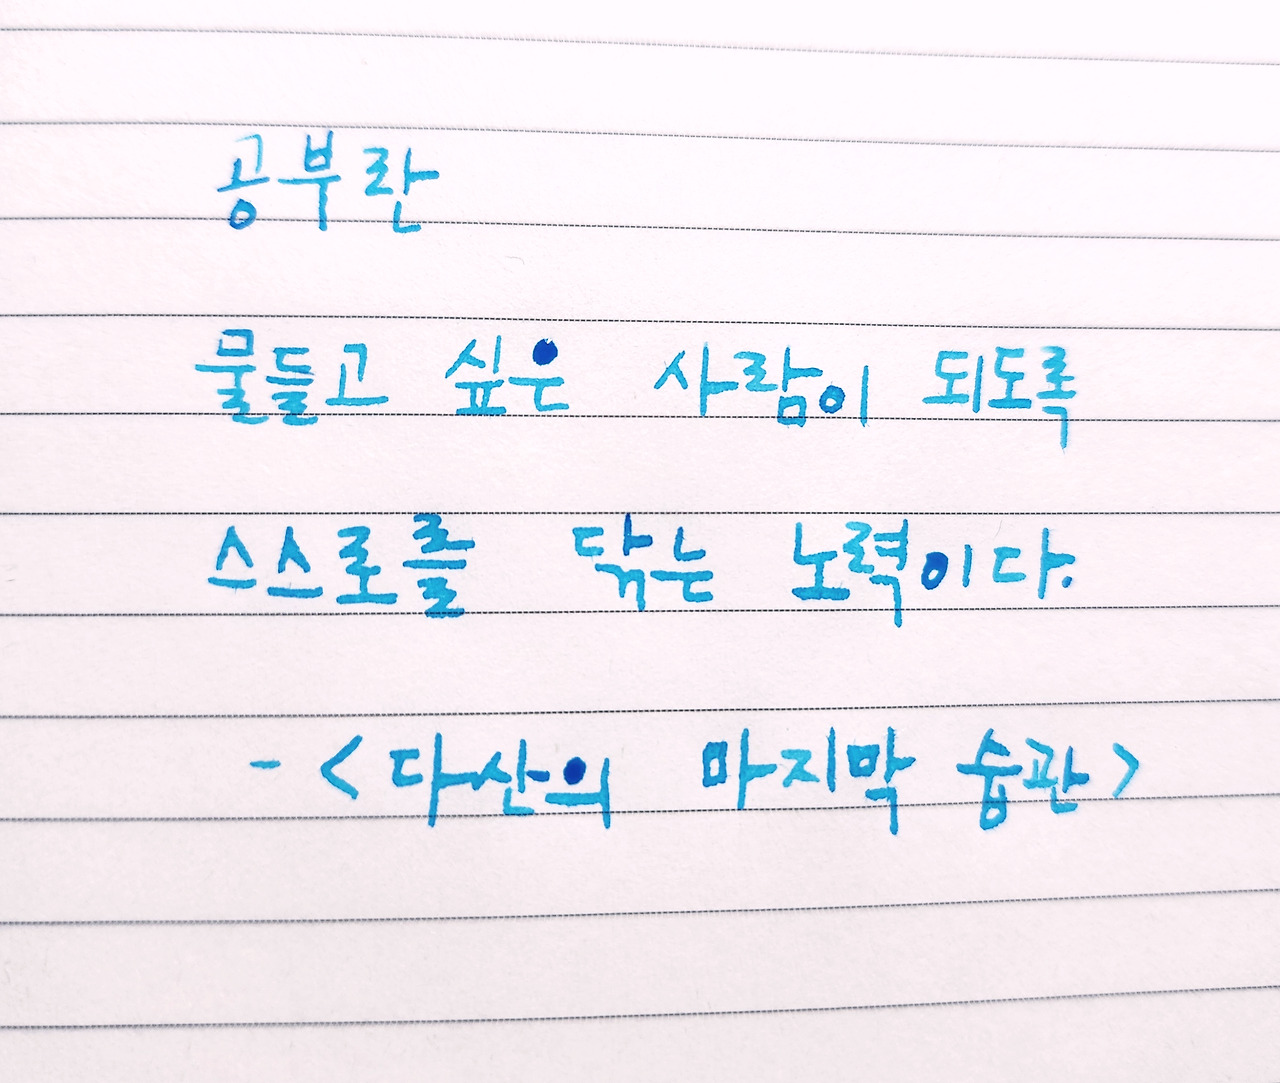 공부란
물들고 싶은 사람이 되도록
스스로를 닦는 노력이다.
- <다산의 마지막 습관>